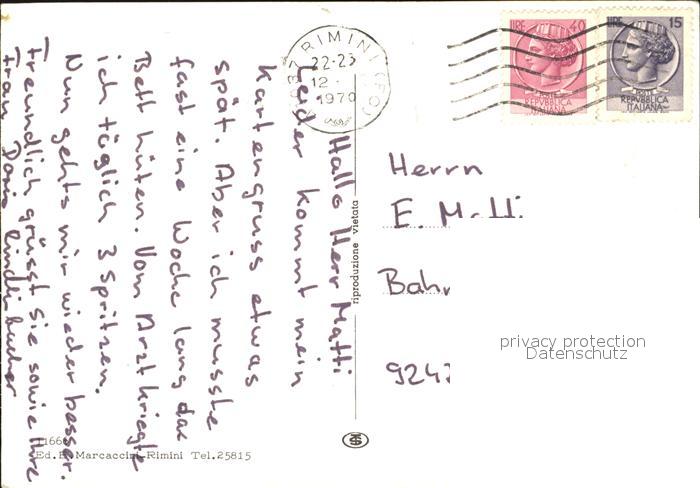 Hallo Herr Matti
Leider kommt mein
Kartengruss etwas
spät. Aber ich musste
fast eine Woche lang das
Bett hüten. Vom Arzt kriegte
ich täglich 3 Spritzen.
Nun gehts mir wieder besser.
Freundlich grüsst Sie sowie Ihre
Frau Doris
H166
Ed. E. Marcaccini-Rimini Tel.25815
riproduzione vietata
RIMINI (FO)
22-23
12.
1970
LIRE 40
POSTE
REPVBBLICA
ITALIANA
LIRE 15
POSTE
REPVBBLICA
ITALIANA
Herrn
E. Matti
Bah
9247
privacy protection
Datenschutz